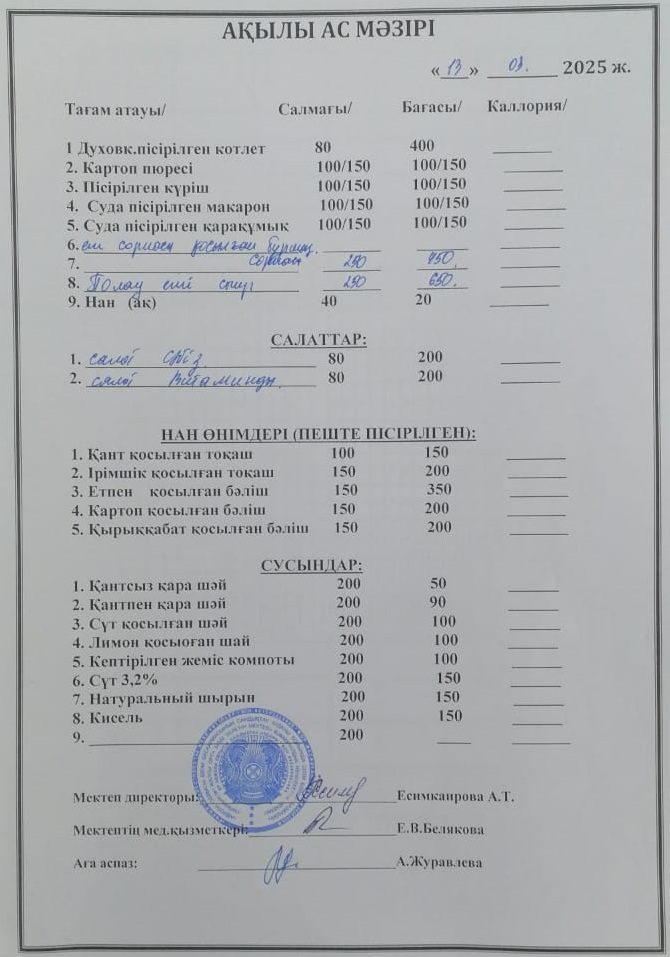 АҚЫЛЫ АС МӘЗІРІ
«13» 03. 2025 ж.
Тағам атауы/ Салмағы/ Бағасы/ Каллория/
1 Духовк.пісірілген котлет 80 400
2. Картоп пюресі 100/150 100/150
3. Пісірілген күріш 100/150 100/150
4. Суда пісірілген макарон 100/150 100/150
5. Суда пісірілген қарақұмық 100/150 100/150
6. ет сорпасы қосылған
7. сорпасы 250 450.
8. Полау еті 250 650.
9. Нан (ақ) 40 20
САЛАТТАР:
1. салат Сәбіз 80 200
2. салат Витаминды 80 200
НАН ӨНІМДЕРІ (ПЕШТЕ ПІСІРІЛГЕН):
1. Қант қосылған тоқаш 100 150
2. Ірімшік қосылған тоқаш 150 200
3. Етпен қосылған бәліш 150 350
4. Картоп қосылған бәліш 150 200
5. Қырыққабат қосылған бәліш 150 200
СУСЫНДАР:
1. Қантсыз қара шәй 200 50
2. Қантпен қара шәй 200 90
3. Сүт қосылған шәй 200 100
4. Лимон қосыоған шай 200 100
5. Кептірілген жеміс компоты 200 100
6. Сүт 3,2% 200 150
7. Натуральный шырын 200 150
8. Кисель 200 150
9. 200
Мектеп директоры: Есимкаирова А.Т.
Мектептің мед.қызметкері: Е.В.Белякова
Аға аспаз: А.Журавлева